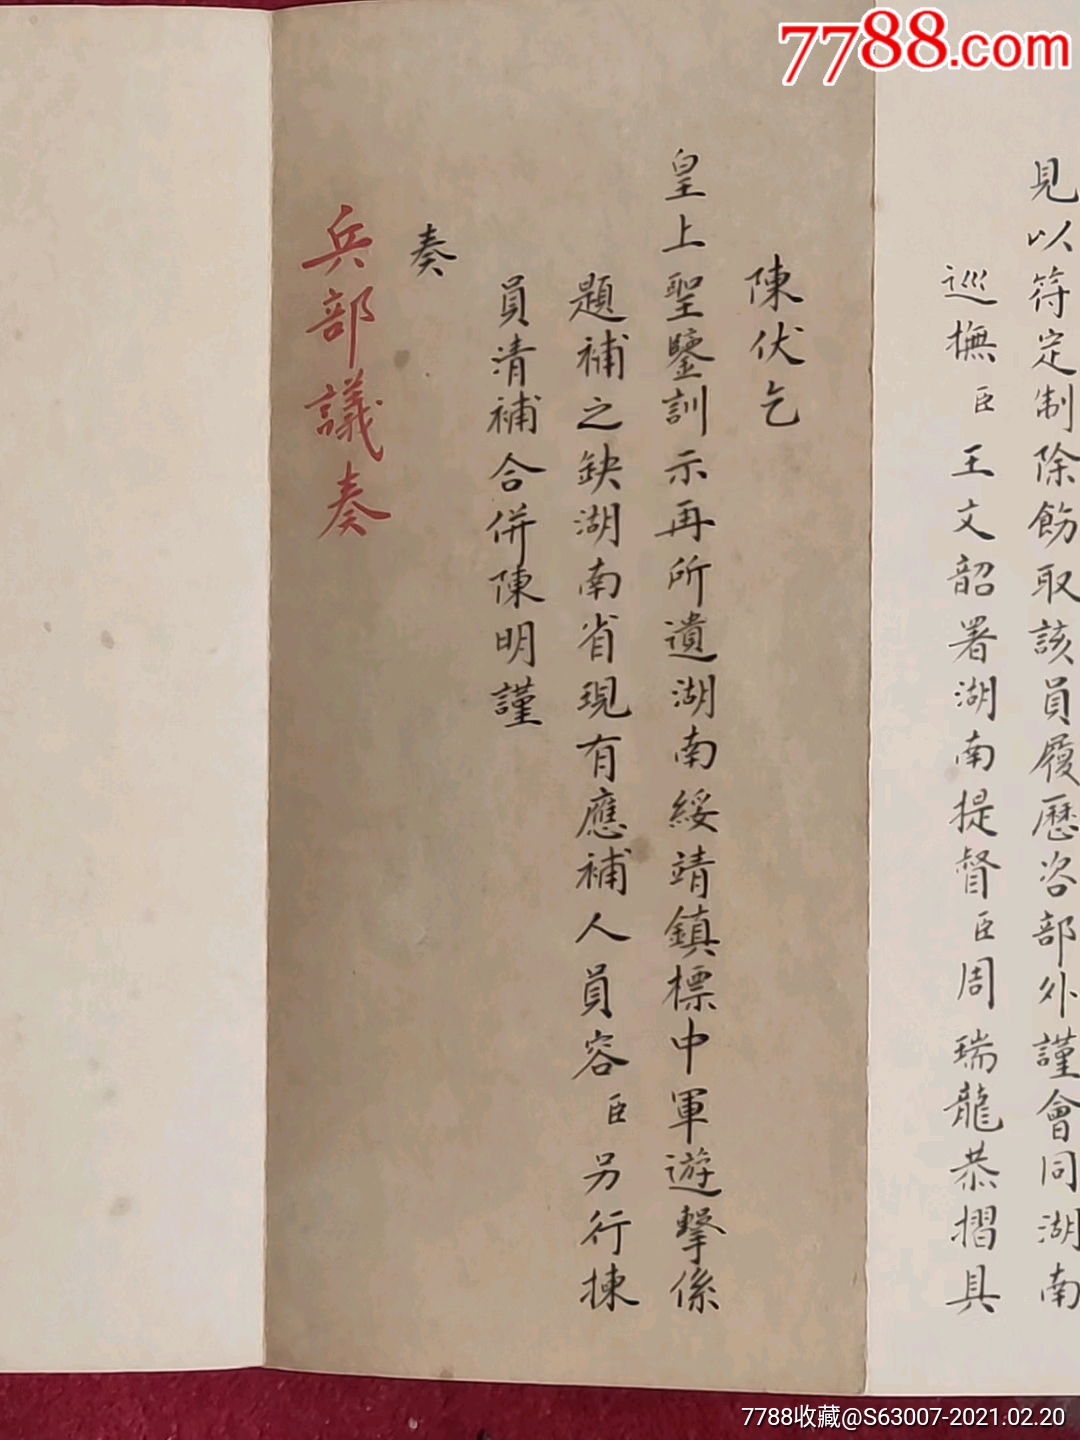 7788.com
見以符定制除飭取該員履歷咨部外謹會同湖南
巡撫臣王文韶署湖南提督臣周瑞龍恭摺具
陳伏乞
皇上聖鑒訓示再所遺湖南綏靖鎮標中軍遊擊係
題補之缺湖南省現有應補人員容臣另行揀
員清補合併陳明謹
奏
兵部議奏
7788收藏@S63007-2021.02.20